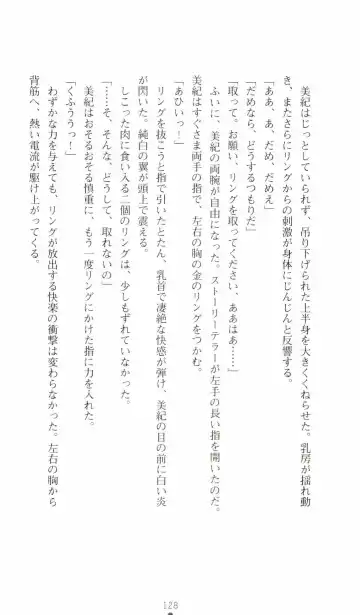 美紀はじっとしていられず、吊り下げられた上半身を大きくくねらせた。乳房が揺れ動
き、またさらにリングからの刺激が身体にじんじんと反響する。
「ああ、あ、だめ、だめえ」
「だめなら、どうするつもりだ」
「取って。お願い、リングを取ってください、ああはあ……」
ふいに、美紀の両腕が自由になった。ストーリーテラーが左手の長い指を開いたのだ。
美紀はすぐさま両手の指で、左右の胸の金のリングをつかむ。
「あひいっ！」
リングを抜こうと指で引いたとたん、乳首で凄絶な快感が弾け、美紀の目の前に白い炎
が閃いた。純白の翼が頭上で震える。
しこった肉に食い入る二個のリングは、少しもずれていなかった。
「……そ、そんな、どうして、取れないの」
美紀はおそるおそる慎重に、もう一度リングにかけた指に力を入れた。
「くふううっ！」
わずかな力を与えても、リングが放出する快楽の衝撃は変わらなかった。左右の胸から
背筋へ、熱い電流が駆け上がってくる。
128